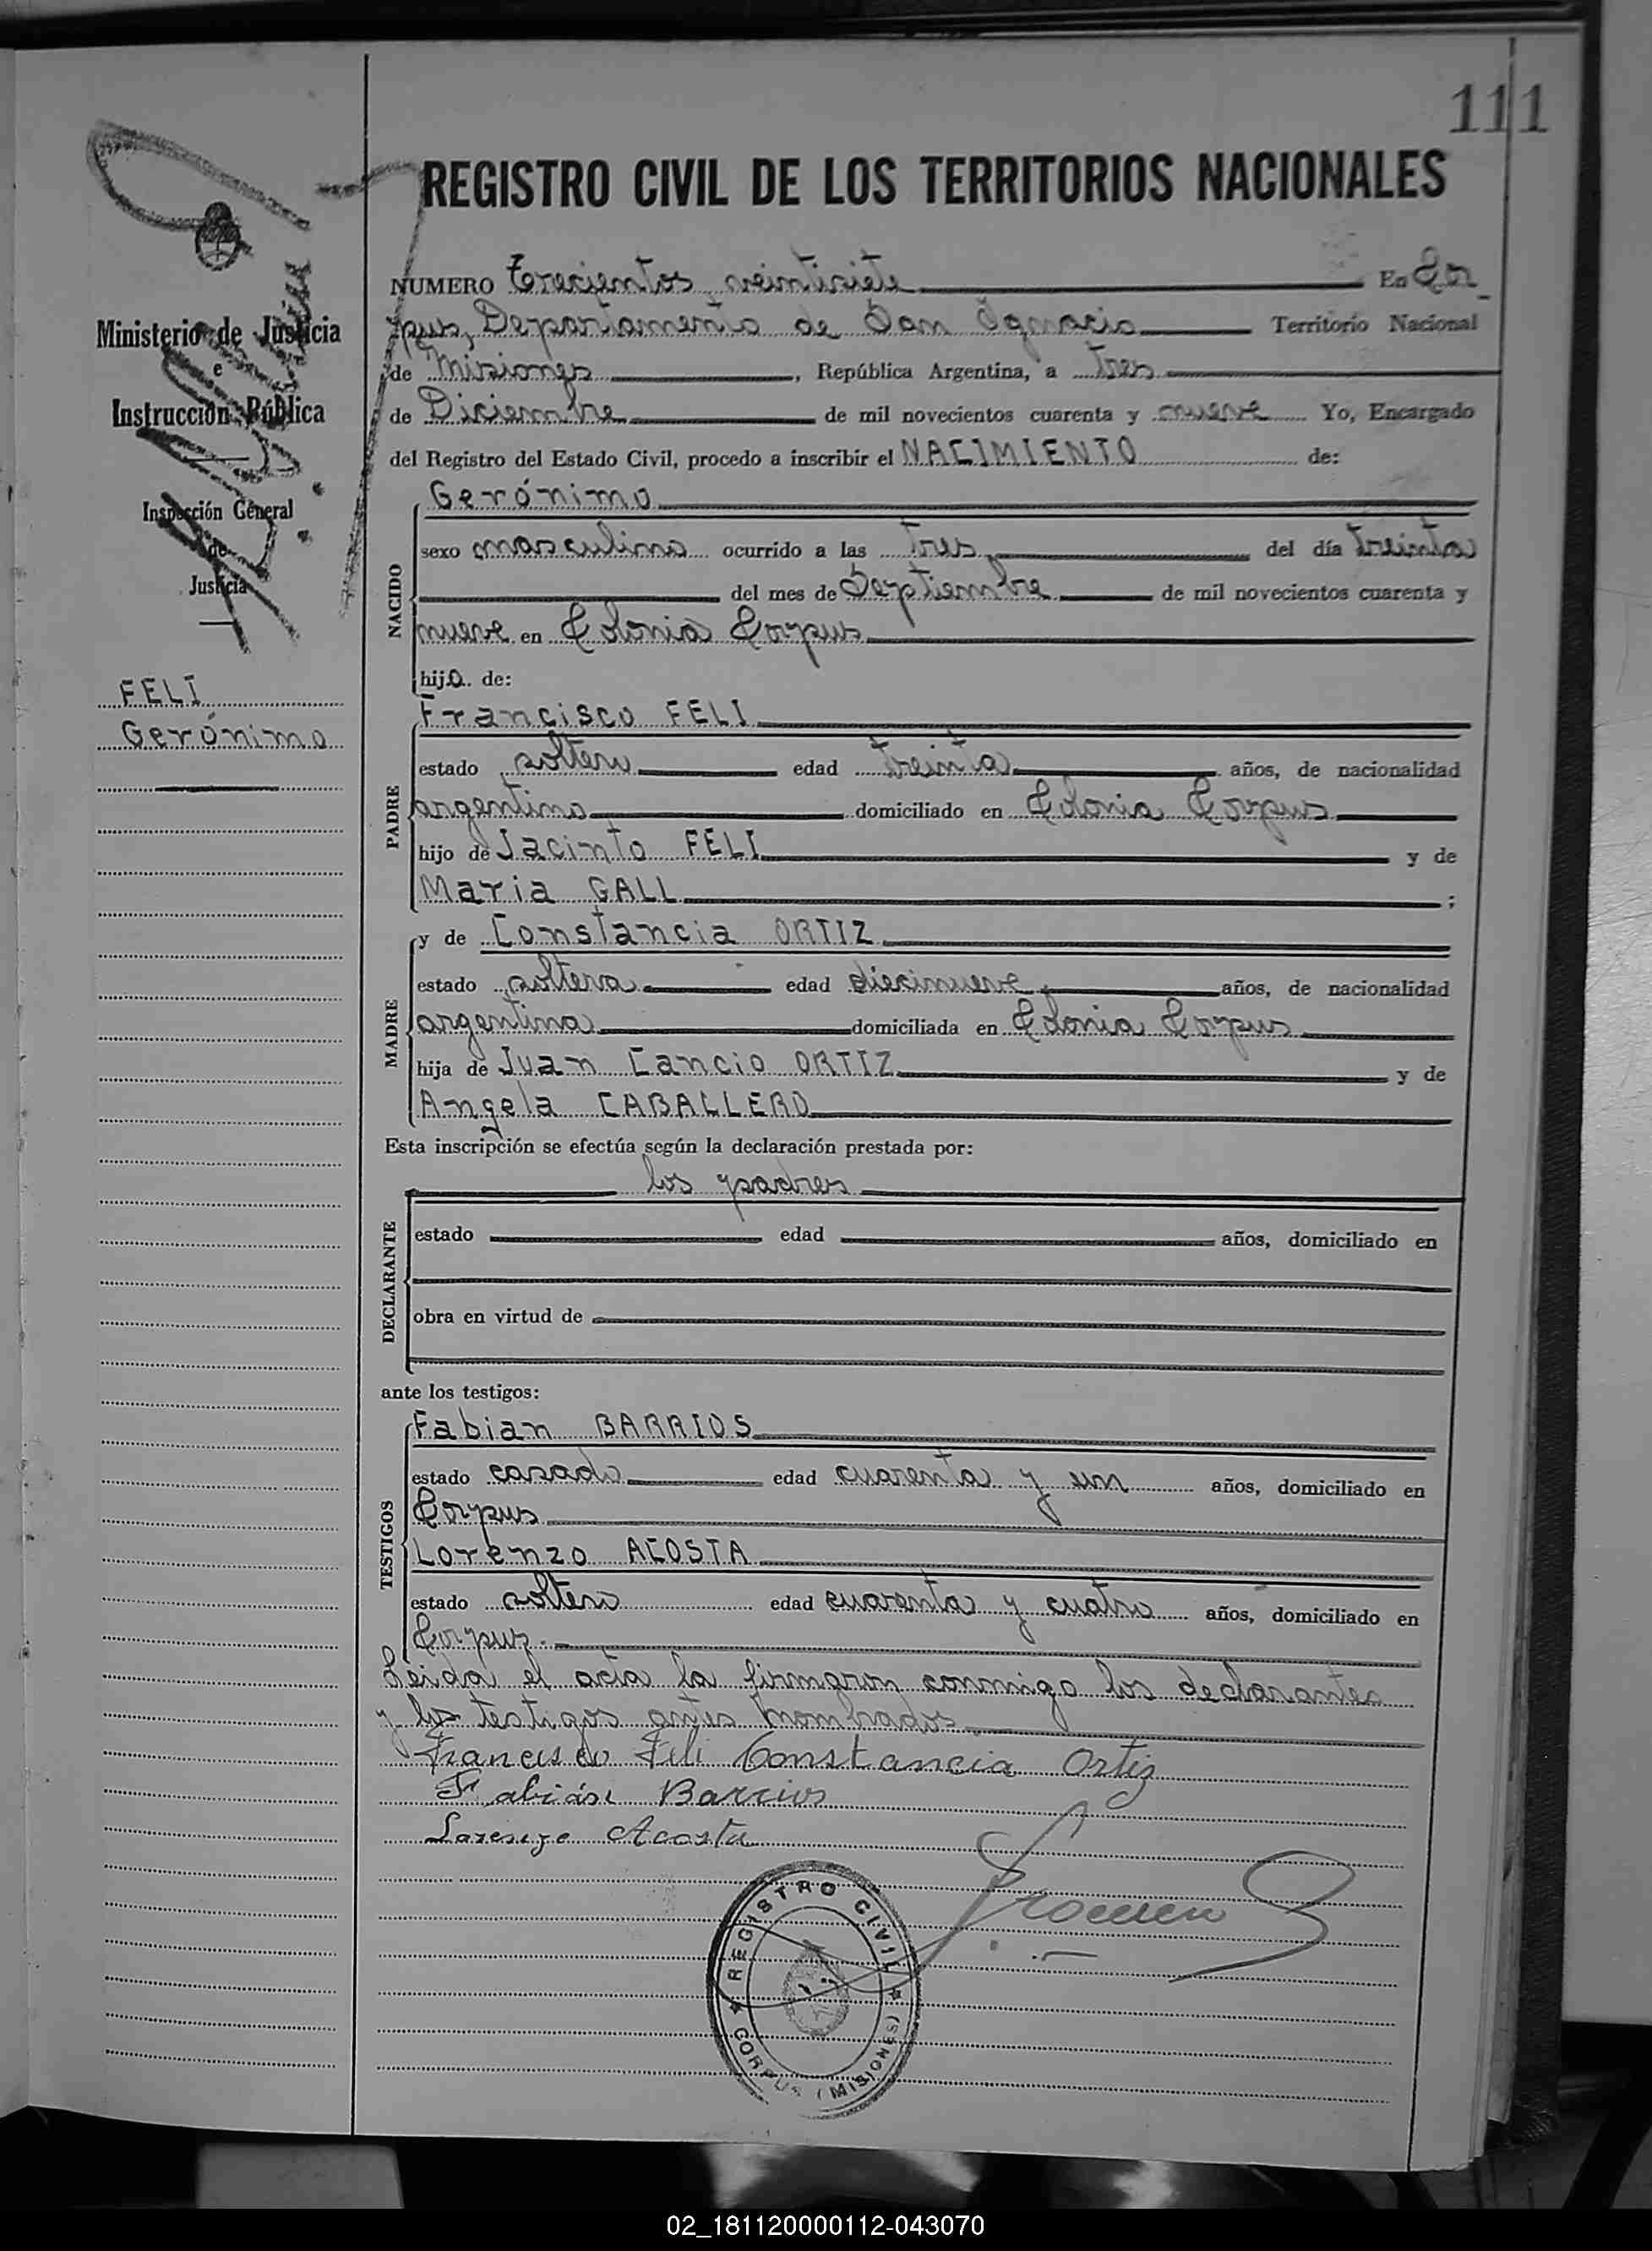 111
REGISTRO CIVIL DE LOS TERRITORIOS NACIONALES
Ministerio de Justicia
e
Instrucción Pública
Inspección General
de
Justicia
FELI
Gerónimo
NUMERO Trecientos veintisiete En Cor
pus, Departamento de San Ignacio Territorio Nacional
de Misiones, República Argentina, a tres
de Diciembre de mil novecientos cuarenta y nueve Yo, Encargado
del Registro del Estado Civil, procedo a inscribir el NACIMIENTO de:
NACIDO
Gerónimo
sexo masculino ocurrido a las tres del día treinta
del mes de Septiembre de mil novecientos cuarenta y
nueve en Colonia Corpus
hijo de:
PADRE
Francisco FELI
estado soltero edad treinta años, de nacionalidad
argentino domiciliado en Colonia Corpus
hijo de Jacinto FELI y de
Maria GALL;
MADRE
y de Constancia ORTIZ
estado soltera edad diecinueve años, de nacionalidad
argentina domiciliada en Colonia Corpus
hija de Juan Cancio ORTIZ y de
Angela CABALLERO
Esta inscripción se efectúa según la declaración prestada por:
los padres
DECLARANTE
estado edad años, domiciliado en
obra en virtud de
ante los testigos:
TESTIGOS
Fabian BARRIOS
estado casado edad cuarenta y un años, domiciliado en
Corpus
Lorenzo ACOSTA
estado soltero edad cuarenta y cuatro años, domiciliado en
Corpus.
Leida el acta la firmaron conmigo los declarantes
y los testigos antes nombrados
Francisco Feli Constancia Ortiz
Fabián Barrios
Lorenzo Acosta
REGISTRO CIVIL
CORPUS (MISIONES)
02_181120000112-043070